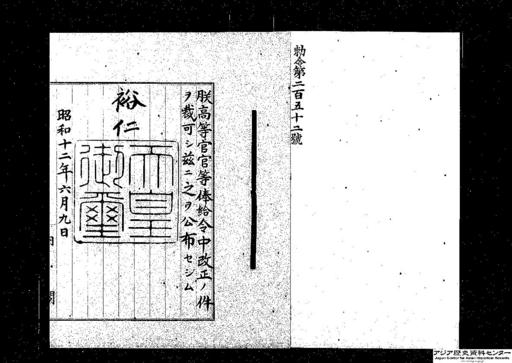 勅令第二百五十二號
朕高等官官等俸給令中改正ノ件
ヲ裁可シ茲ニ之ヲ公布セシム
裕仁
天皇
御璽
昭和十二年六月九日
内閣
アジア歴史資料センター
Japan Center for Asian Historical Records